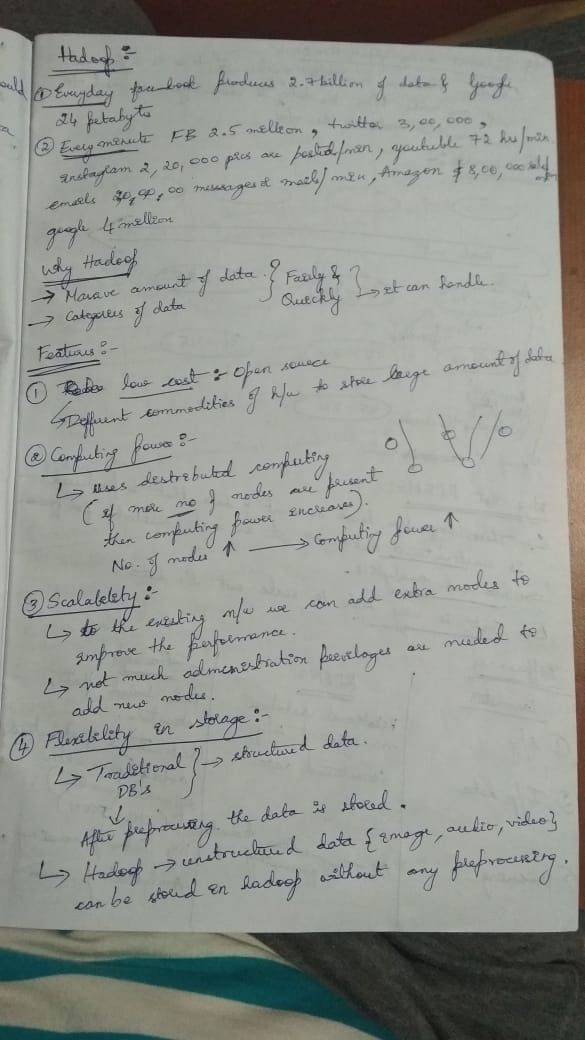 Hadoop :-
① Everyday facebook produces 2.7 billion of data & Google
24 petabyte
② Every minute FB 2.5 million, twitter 3,00,000,
instaglam 2,20,000 pics are posted/min, youtuble 72 hrs/min
emails messages & mails/min, Amazon $ 8,00,000
google 4 million
Why Hadoop
→ Massive amount of data } Easily & } → it can handle.
→ Categories of data } Quickly
Features :-
① low cost :- Open source
↳ Different commodities of h/w to store large amount of data
② Computing power :-
↳ uses distributed computing
(if more no of nodes are present
then computing power increases).
No. of nodes ↑ → Computing power ↑
③ Scalability :-
↳ to the existing n/w we can add extra nodes to
improve the performance.
↳ not much administration previlages are needed to
add new nodes.
④ Flexibility in storage :-
↳ Traditional } → structured data.
DB's
↓
After preprocessing the data is stored.
↳ Hadoop → unstructured data {image, audio, video}
can be stored in hadoop without any preprocessing.
ould